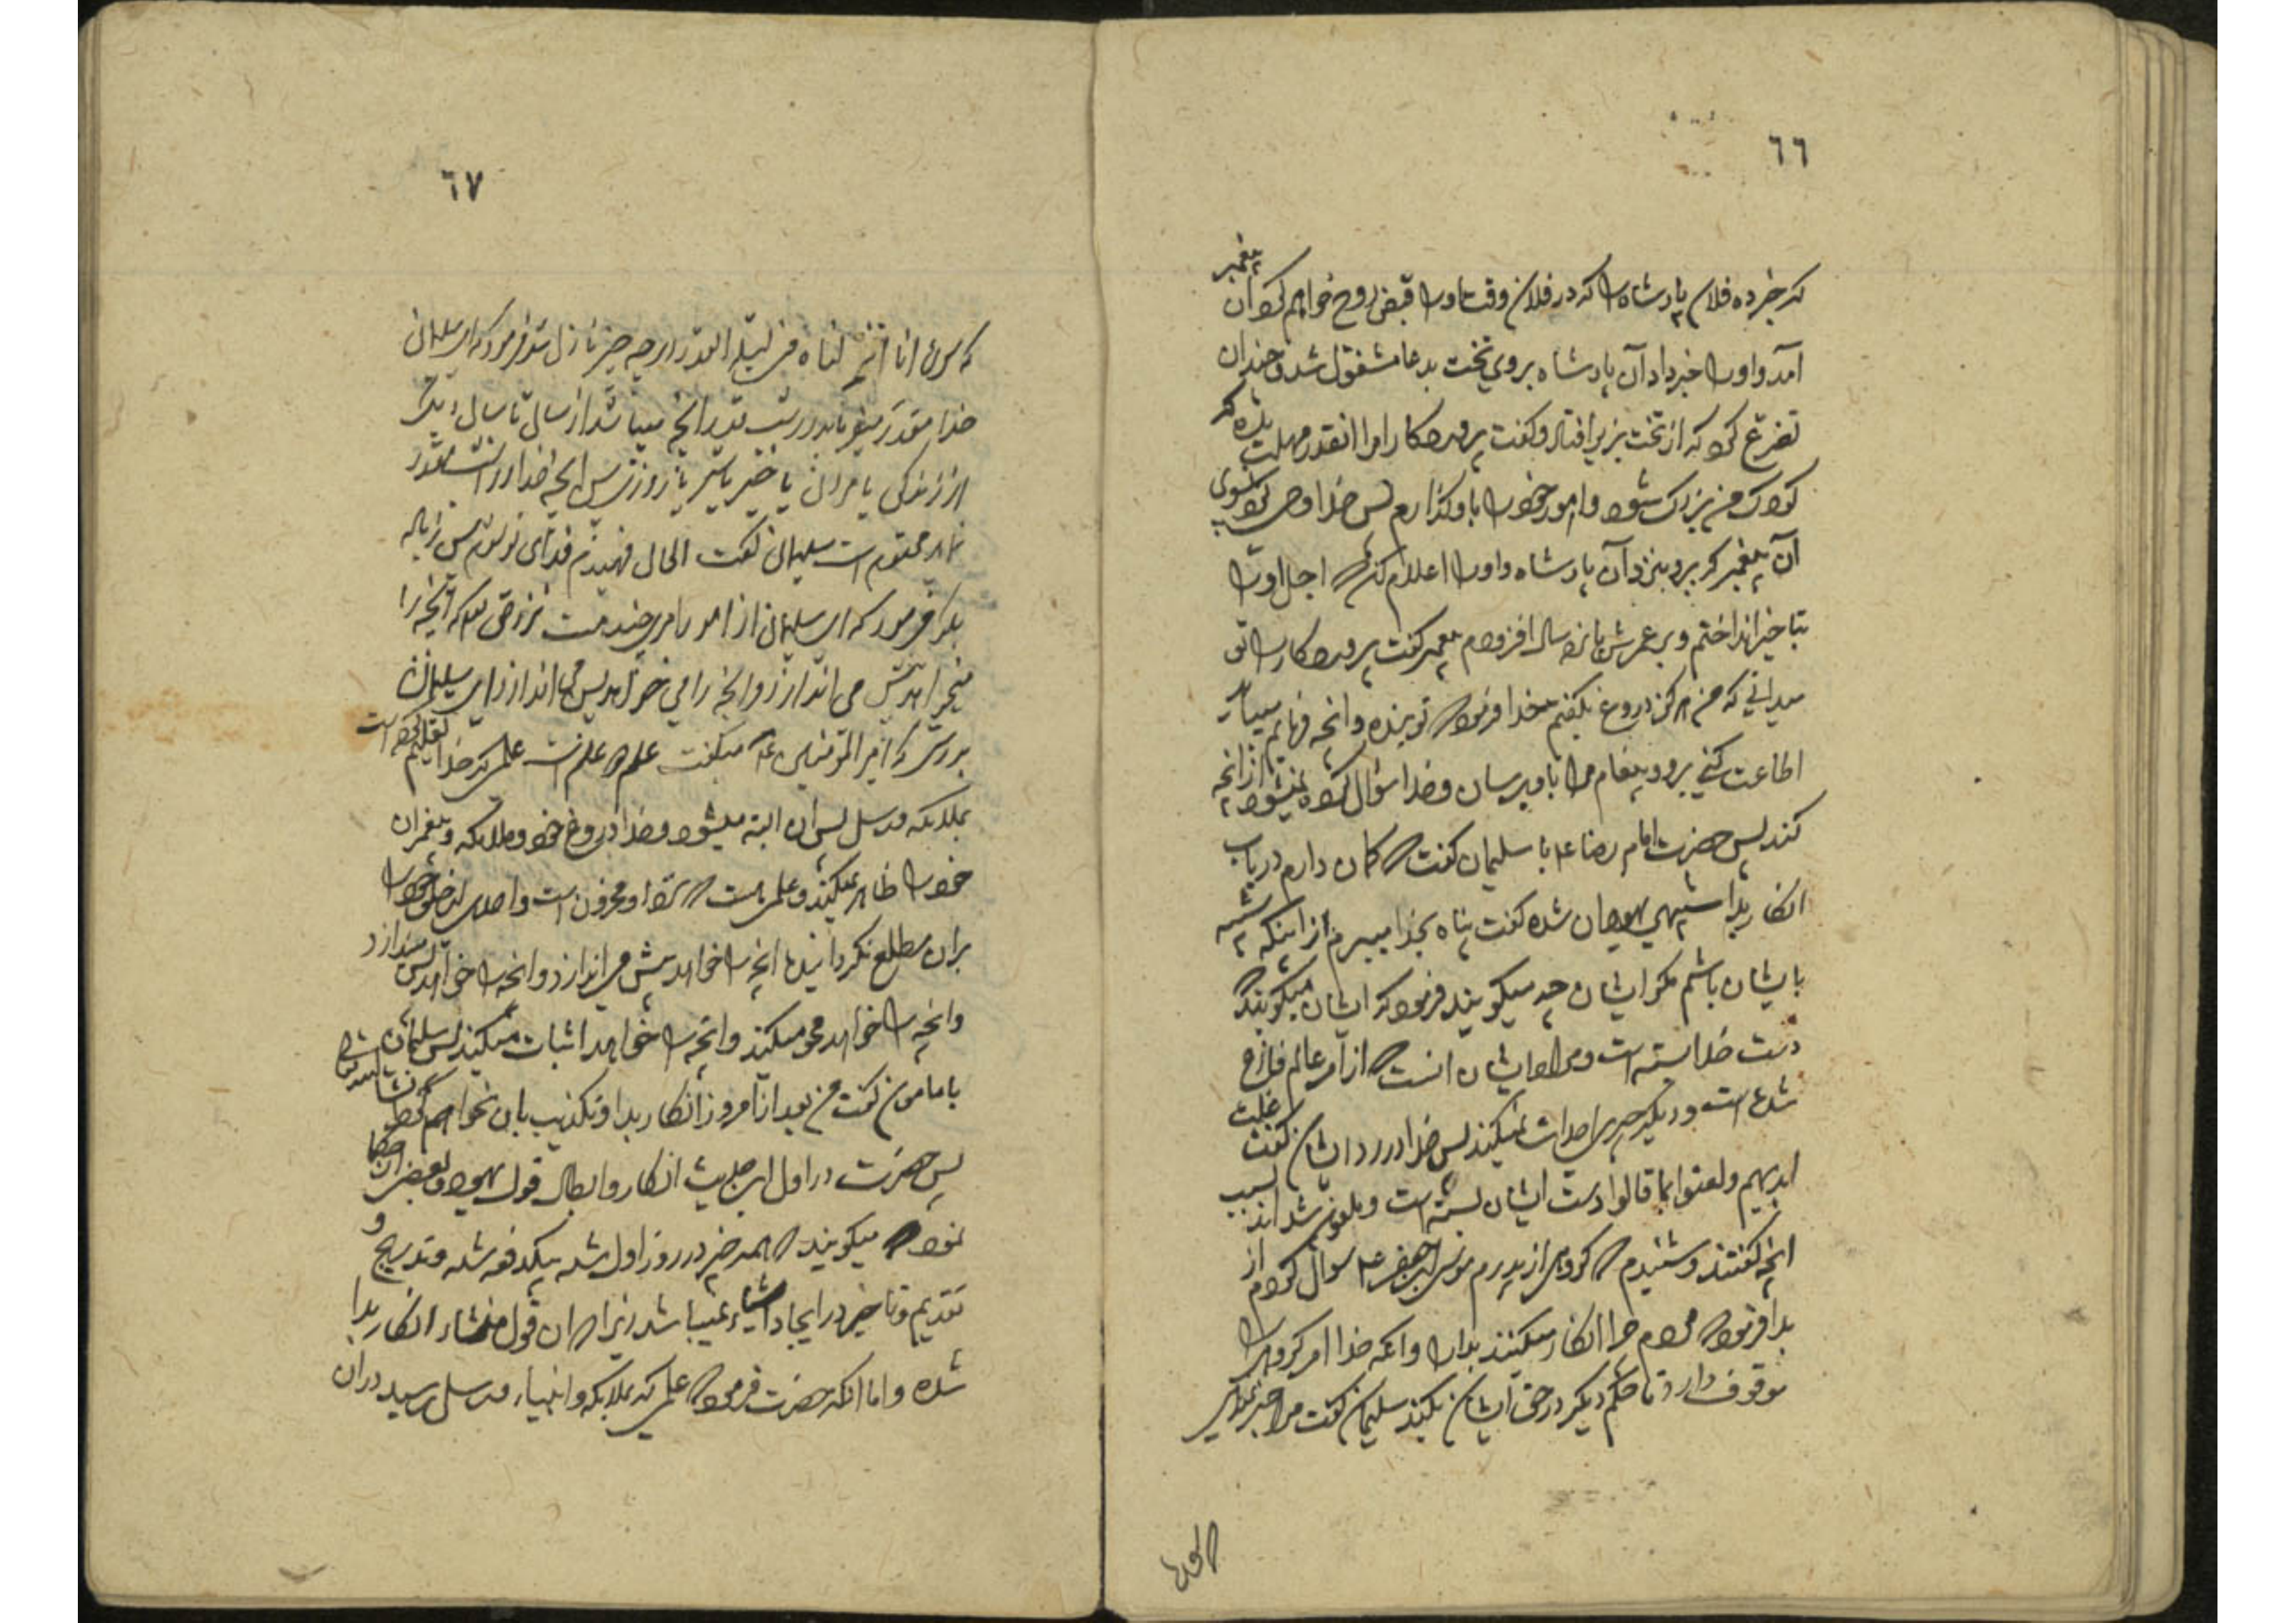 ٦٦
که خبر ده فلان پادشاه را که در فلان وقت او را قبض روح خواهم کرد آن پیغمبر
آمد و او را خبر داد آن پادشاه بروی تخت بدعا مشغول شد و چندان
تضرع کرد که از تخت بزیر افتاد و گفت پروردکارا مرا انقدر مهلت بده که
کودک من بزرک شود و امور خود را باو گذارم پس خدا وحی کرد بسوی
آن پیغمبر که برو بنزد آن پادشاه و او را اعلام کن که اجل او را
بتاخیر انداختم و بر عمرش پانزده سال افزودم پیغمبر گفت پروردکارا تو
میدانی که من هرکز دروغ نکفتم خدا فرمود که تو بنده و انچه فرمایم میباید
اطاعت کنی برو و پیغام مرا باو برسان و خدا سؤال کرده نمیشود از انچه
کند پس حضرت امام رضا ع با سلیمان گفت که کمان دارم در باب
انکار بدا شبیه بیهودان شده گفت پناه بخدا میبرم از اینکه شبیه
بایشان باشم مکر ایشان چه میکویند فرمود که ایشان میکویند که
دست خدا بسته است و مراد ایشان انست که از امر عالم فارغ
شده است و دیکر چیزی احداث نمیکند پس خدا در رد ایشان گفت غلت
ایدیهم و لعنوا بما قالوا دست ایشان بسته است و ملعون شده اند بسبب
انچه گفتند و شنیدم که کروهی از پدرم موسی ابن جعفر ع سوال کردم از
بدا فرمود که مردم چرا انکار میکنند بدا را و انکه خدا امر کروهی را
موقوف دارد تا حکم دیکر در حق ایشان بکند سلیمان گفت مرا خبر نمیدهی
٦٧
که سوره انا انزلناه فی لیلة القدر در چه چیز نازل شد فرمود که ای سلیمان
خدا مقدر میفرماید در شب قدر انچه میباشد از سال تا سال دیکر
از زندکی یا مردن یا خیر یا شر یا روزی پس انچه خدا در انشب مقدر
نماید محتوم است سلیمان گفت الحال فهمیدم فدای تو شوم پس زیاده
بکو فرمود که ای سلیمان از امور امری چند هست نزد حق که انچه را
میخواهد پیش می اندازد و انچه را می خواهد پس می اندازد ای سلیمان
بدرستی که امیر المؤمنین ع میکفت علم دو علم است علمی که خدا تعلیم کرده است
بملائکه و رسل پس ان البته میشود و خدا دروغ خود و ملائکه و پیغمبران
خود را ظاهر نمیکند و علمی هست که نزد او مخزون است و احدی از خلق خود را
بران مطلع نکردانیده انچه را خواهد پیش می اندازد و انچه را خواهد پس میندازد
و انچه را خواهد محو میکند و انچه را خواهد اثبات میکند پس سلیمان
بامامون گفت من بعد از امروز انکار بدا و تکذیب بان نخواهم کرد انشاء الله
پس حضرت در اول این حدیث انکار و ابطال قول یهود و بعضی از حکما
نموده که میکویند که همه چیز در روز اول شده بیکدفعه شده و تدریج و
تقدیم و تاخیر در ایجاد اشیاء نمیباشد زیرا که ان قول منشاء انکار بدا
شده و اما انکه حضرت فرموده که علمی که بملائکه و انبیاء و رسل رسید دران